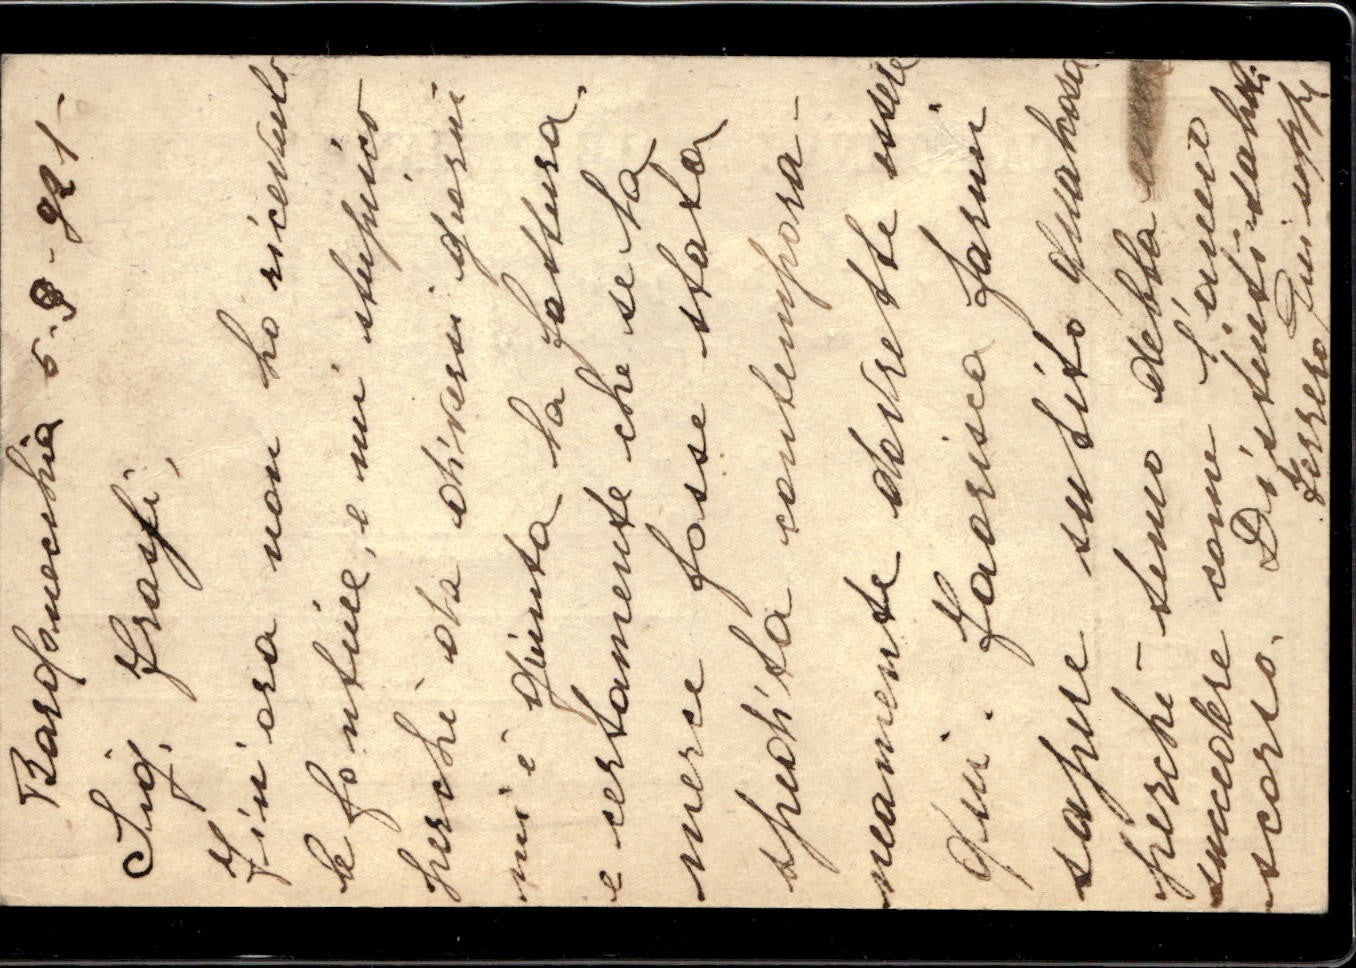 Bardonecchia 5-9-921-
Sig. Grassi,
Fin'ora non ho ricevuto
le fontine, e mi stupisco
perchè da diversi giorni
mi è giunta la fattura.
e certamente che se la
merce fosse stata
spedita contempora-
neamente dovrebbe essere
qui. Favorisca farmi
sapere subito qualcosa
perchè temo debba
succedere come l'anno
scorso. Distinti saluti
Ferrero Giuseppe